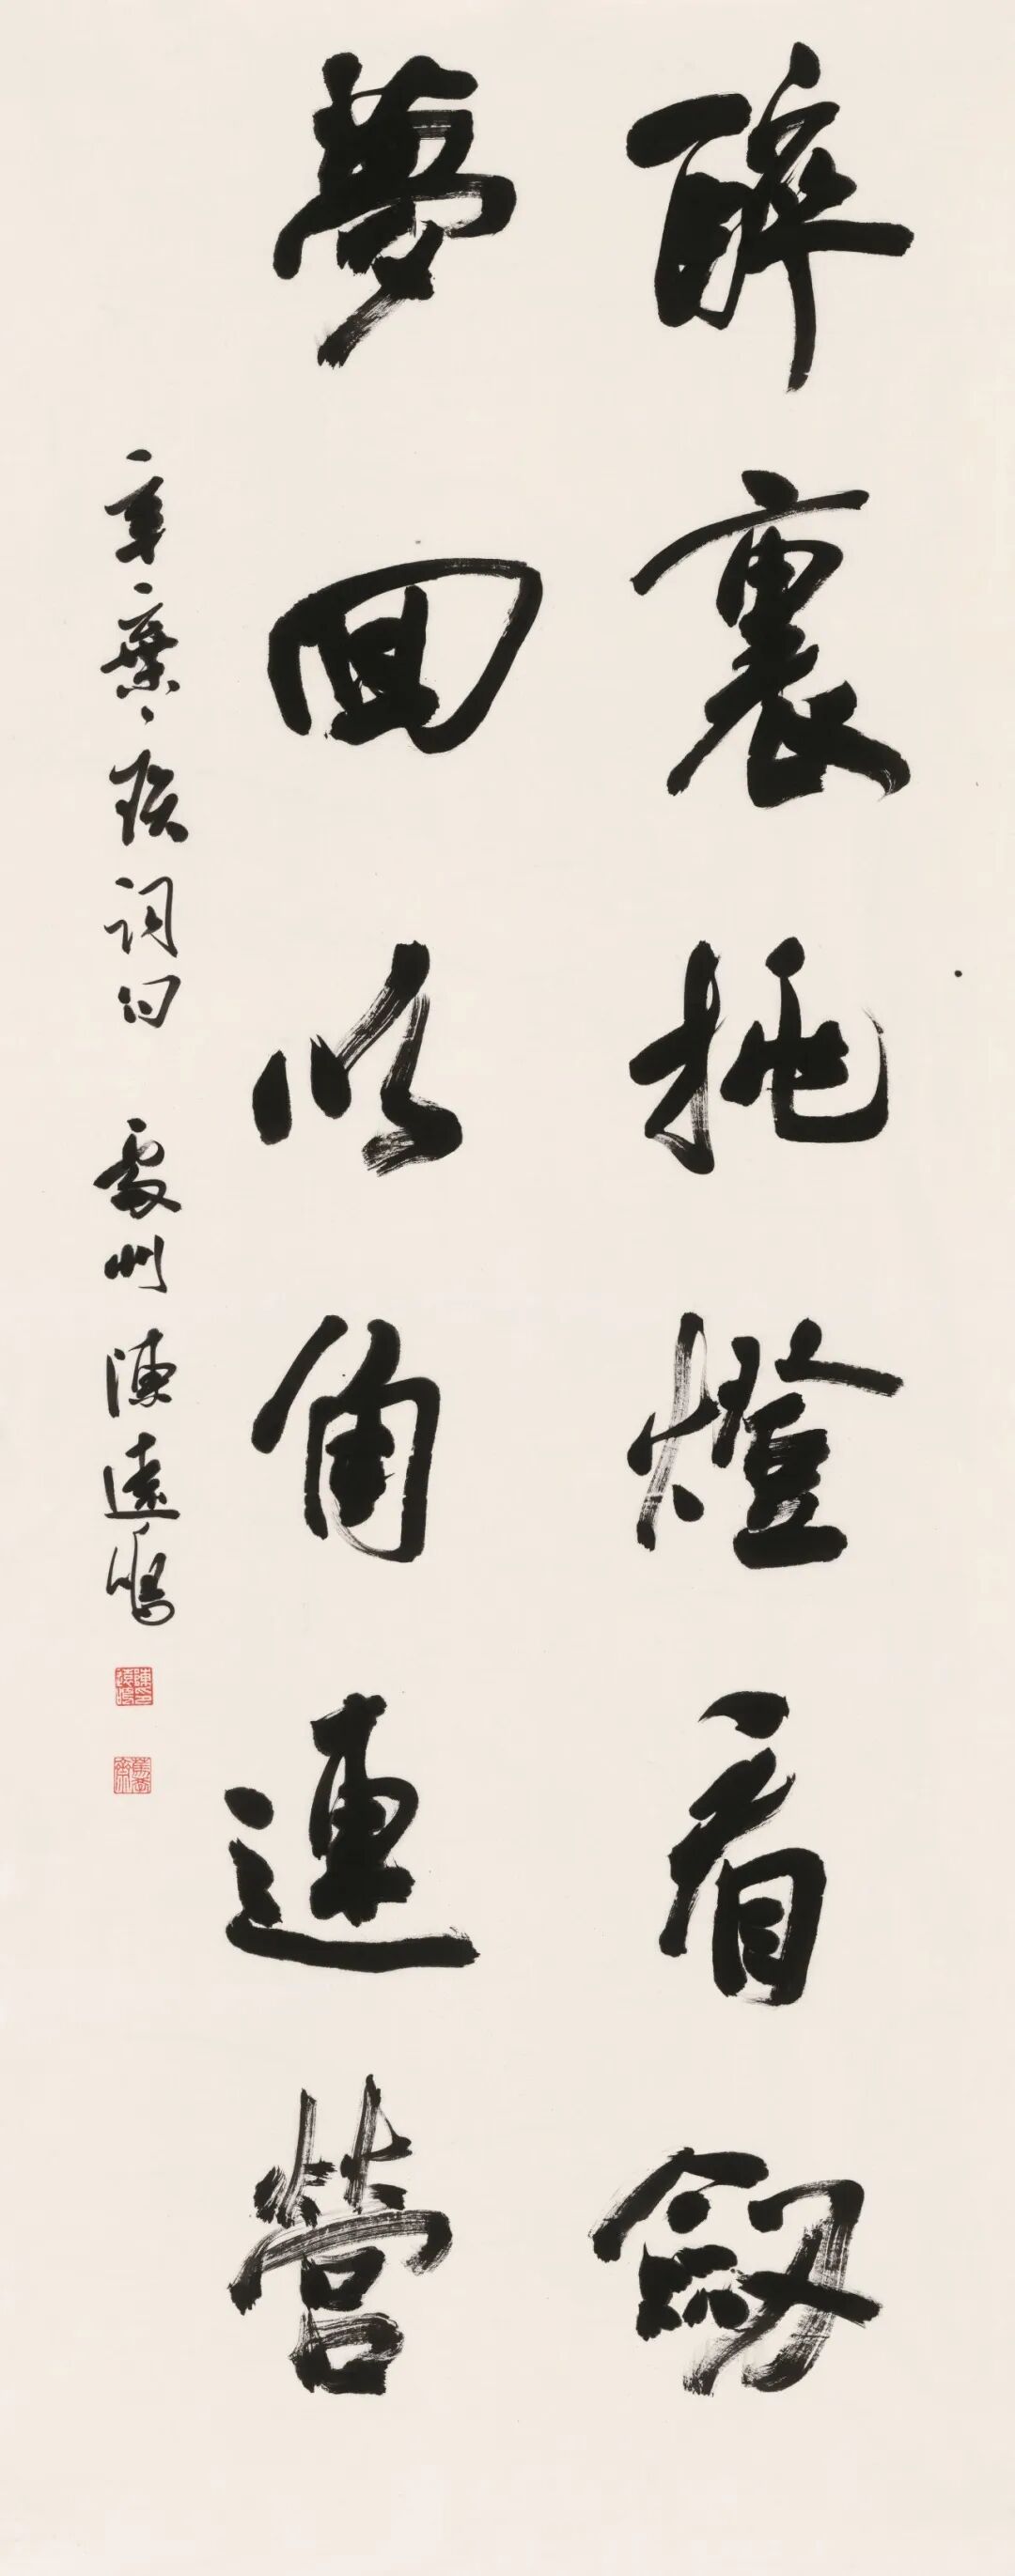 醉裏挑燈看劍
夢回吹角連營
辛棄疾詞句 處州陳遠鳴